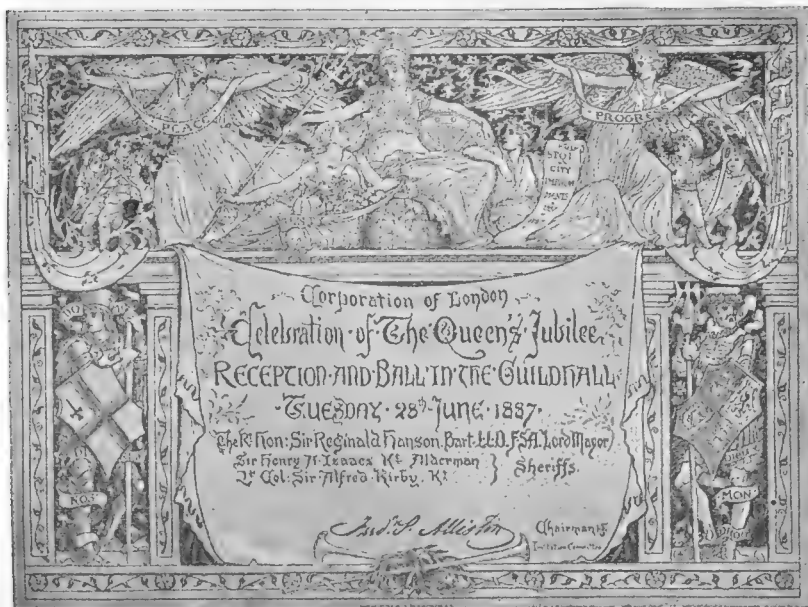 PEACE
PROGRE
CITY
Corporation of London
Celebration · of · The · Queen's · Jubilee
RECEPTION · AND · BALL · IN · THE · GUILDHALL
· TUESDAY · 28th · JUNE · 1887 ·
The Rt Hon: Sir Reginald Hanson, Bart. LL.D. F.S.A. Lord Mayor
Sir Henry A. Isaacs Kt Alderman } Sheriffs.
Lt Col: Sir Alfred Kirby Kt
MON
Chairman of
Invitation Committee